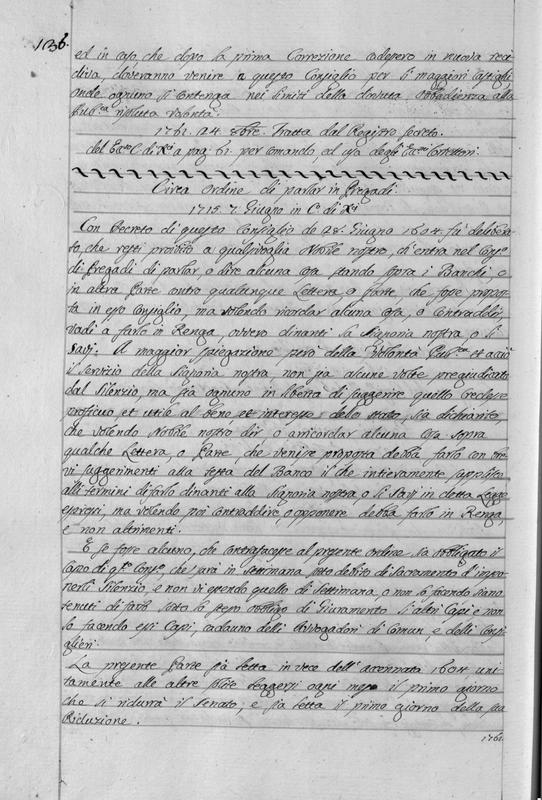 136.
ed in caso, che dopo la prima Correzione cadessero in nuova reci
diva, doveranno venire a questo Consiglio per li maggiori castighi
onde ognuno si contenga nei limiti della dovuta obbedienza alla
Pub.ca risoluta volontà.
1761. 24. 8bre. Tratta dal Registro secreto
del Ecc.o C. di X.ci a pag. 61. per comando, ed
Circa Ordine di parlar in Pregadi.
1715. 7. Giugno in C.o di X.ci
Con Decreto di questo Consiglio de 28. Giugno 1604. fù delibera
to, che resti proibito a qualsivoglia Nobile nostro, ch'entra nel Cons.o
di Pregadi di parlar, o dire alcuna cosa stando sopra i Banchi, o
in altra Parte contro qualunque Lettera, o parte, che fosse propos
ta in esso Consiglio, ma volendo ricordar alcuna cosa, o Contraddir,
vadi a farlo in Renga, ovvero dinanti la Signoria nostra, o li
Savj. A maggior spiegazione però della Volontà Pub.ca et acciò
il servizio della Signoria nostra non sia alcune volte pregiudicato
dal Silenzio, ma sia ognuno in libertà di suggerire quello credesse
proficuo, et utile al bene, et interesse dello stato, sia dichiarito,
che volendo Nobile nostro dir, o arricordar alcuna cosa sopra
qualche Lettera, o Parte, che venisse proposta debba farlo con bre
vi suggerimenti alla testa del Banco il che intieramente
alli termini di farlo dinanti alla Signoria nostra, o li Savj in detta Legge
espressi, ma volendo poi contraddire, o opponere debba farlo in Renga,
e non altrimenti.
E se fosse alcuno, che contrafacesse al presente ordine sia obbligato il
Capo di q.to Cons.o, che sarà in settimana sotto debito di Sacramento d'impo
nerli Silenzio, e non vi essendo quello di Settimana, o non lo facendo siano
tenuti di farlo sotto lo stesso obbligo di Giuramento li altri Capi e non
lo facendo essi Capi, cadauno delli Avvogadori di Comun, e delli Consi
glieri.
La presente Parte sia letta in vece dell'accennata 1604. uni
tamente alle altre solite leggersi ogni mese il primo giorno
che si ridurrà il Senato, e sia letta il primo giorno della sua
Riduzione.
1761.